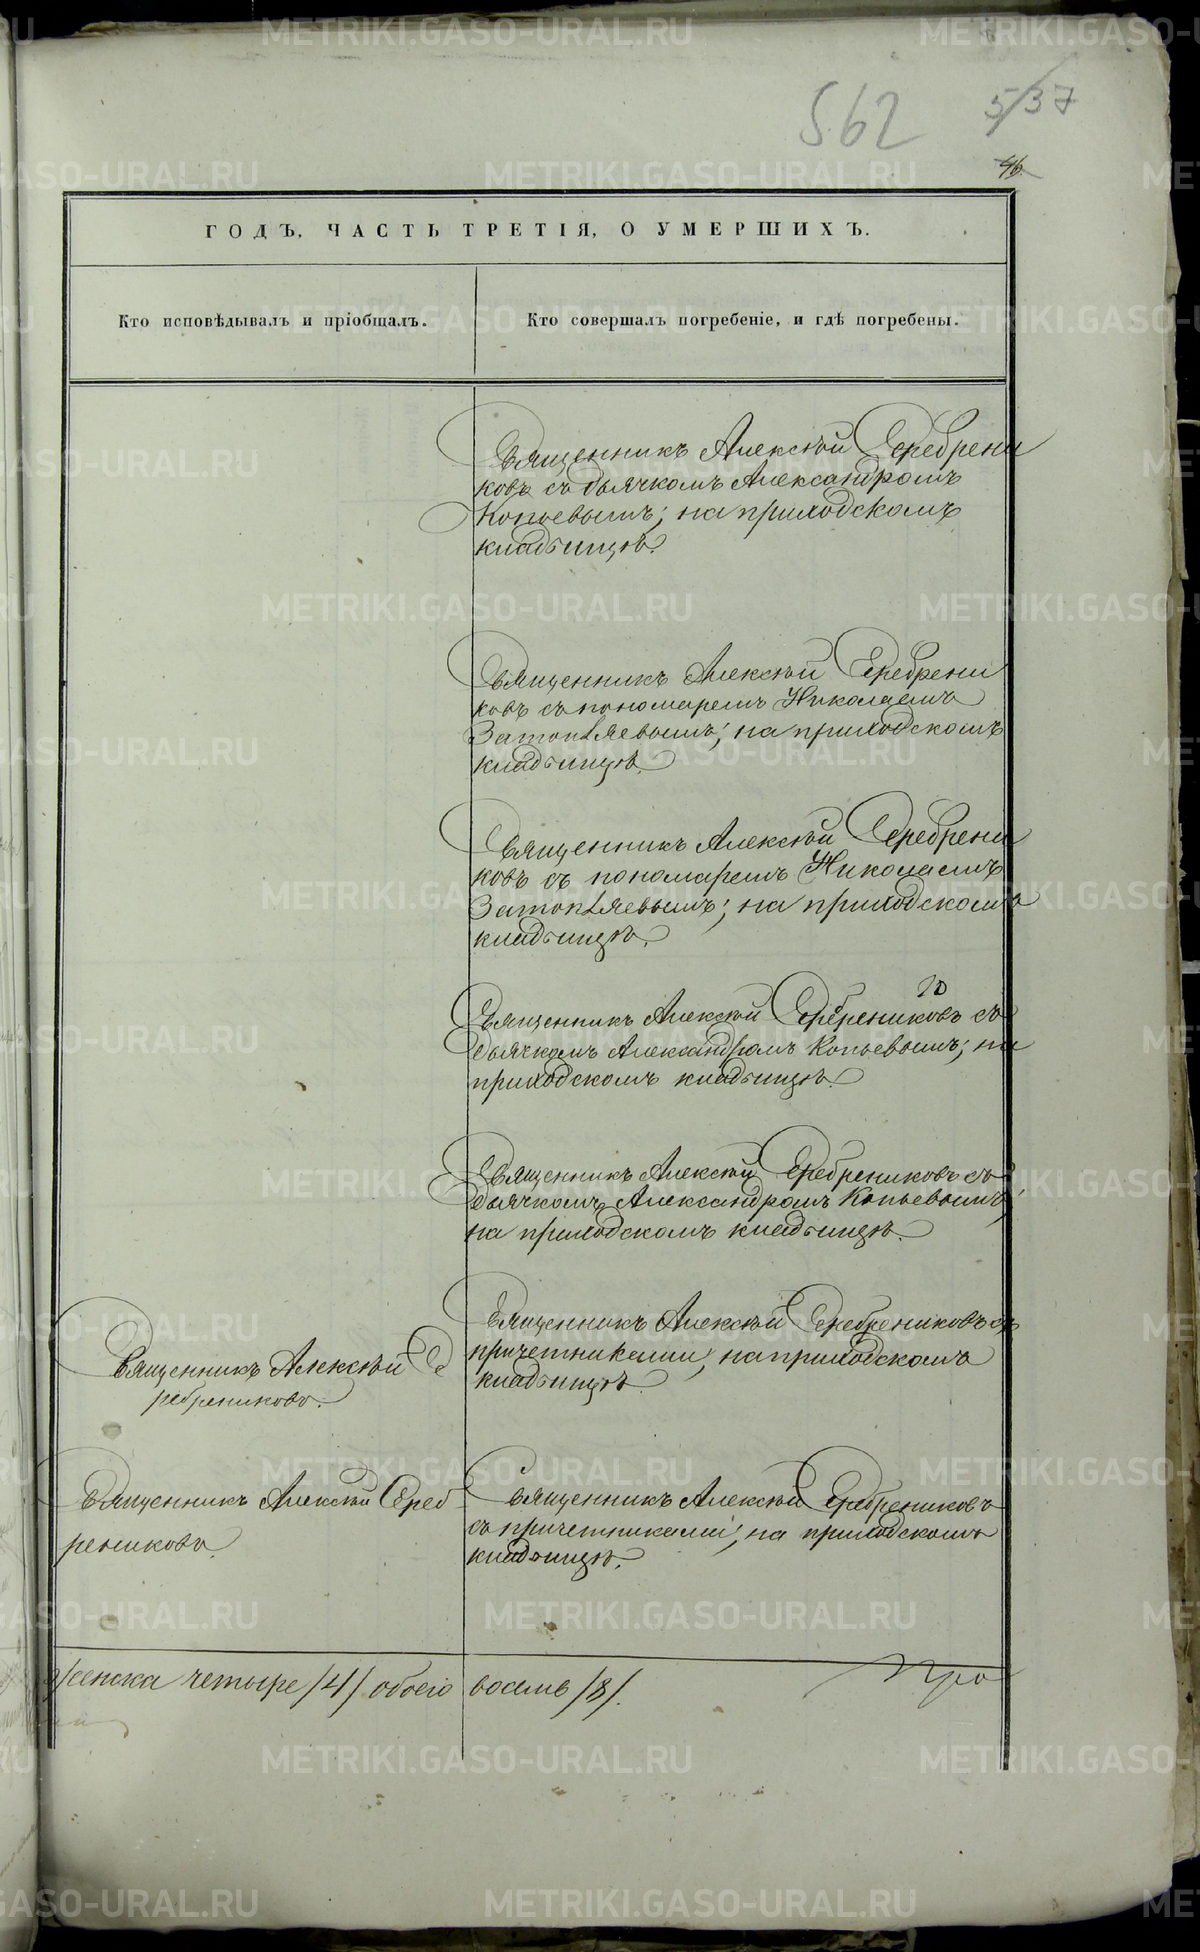 562
5/37
46.
ГОДЪ, ЧАСТЬ ТРЕТІЯ, О УМЕРШИХЪ.
Кто исповѣдывалъ и пріобщалъ.
Кто совершалъ погребеніе, и гдѣ погребены.
Священникъ Алексѣй Серебрени
ковъ съ дьячкомъ Александромъ
Копьевымъ; на приходскомъ
кладбищѣ.
Священникъ Алексѣй Серебрени
ковъ съ пономаремъ Николаемъ
Затопляевымъ; на приходскомъ
кладбищѣ.
Священникъ Алексѣй Серебрени
ковъ съ пономаремъ Николаемъ
Затопляевымъ; на приходскомъ
кладбищѣ.
Священникъ Алексѣй Серебрениковъ съ
дьячкомъ Александромъ Копьевымъ; на
приходскомъ кладбищѣ.
Священникъ Алексѣй Серебрениковъ съ
дьячкомъ Александромъ Копьевымъ;
на приходскомъ кладбищѣ.
Священникъ Алексѣй Се
ребрениковъ.
Священникъ Алексѣй Серебрениковъ съ
причетниками; на приходскомъ
кладбищѣ.
Священникъ Алексѣй Сереб
рениковъ.
Священникъ Алексѣй Серебрениковъ
съ причетниками; на приходскомъ
кладбищѣ.
женска четыре /4/ обоего восемь /8/.
METRIKI.GASO-URAL.RU